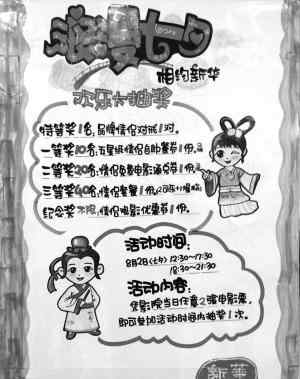 浪漫七夕
相约新华
欢乐大抽奖
特等奖1名,品牌情侣对戒1对。
一等奖10名,五星级情侣自助餐券1份。
二等奖20名,情侣免费电影通兑券1份。
三等奖40名,情侣套餐1份。
纪念奖不限,情侣观影优惠券1份。
活动时间:
8月2日(七夕) 12:30~17:30
18:30~21:30
活动内容:
凭影院当日任意2张电影票,
即可参加活动时间内抽奖1次。
新华